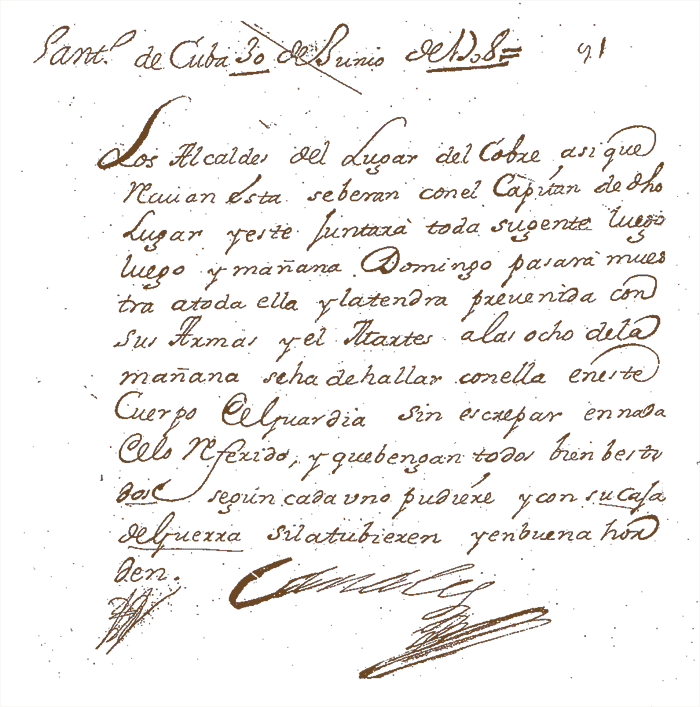 Santº de Cuba 30 de Junio de 1708= 91
Los Alcaldes del Lugar del Cobre asi que
Recivan esta seberan conel Capitan de dho
Lugar yeste Juntará toda sugente luego
luego y mañana Domingo pasará mues
tra atoda ella ylatendra prevenida con
sus Armas y el Martes alas ocho dela
mañana seha dehallar conella eneste
Cuerpo de Guardia sin escrepar ennada
de lo Referido, y quebengan todos bien besti
dos según cada uno pudiére y con su casa
de Guerra silatubieren yenbuena hor
den.